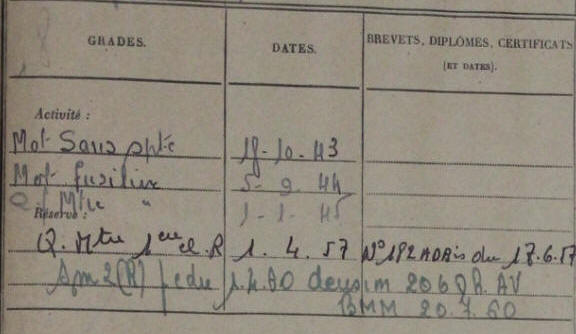 GRADES. DATES. BREVETS, DIPLÔMES, CERTIFICATS
(ET DATES).
Activité :
Mot Sans spté 18-10-43
Mot fusilier 5-9-44
Q. Mtre " 1-1-45
Réserve :
Q. Mtre 1ère cl. R 1.4.57 N° 192 du 17.6.57
Sm 2(R) 206 AV
BMM 20.7.60